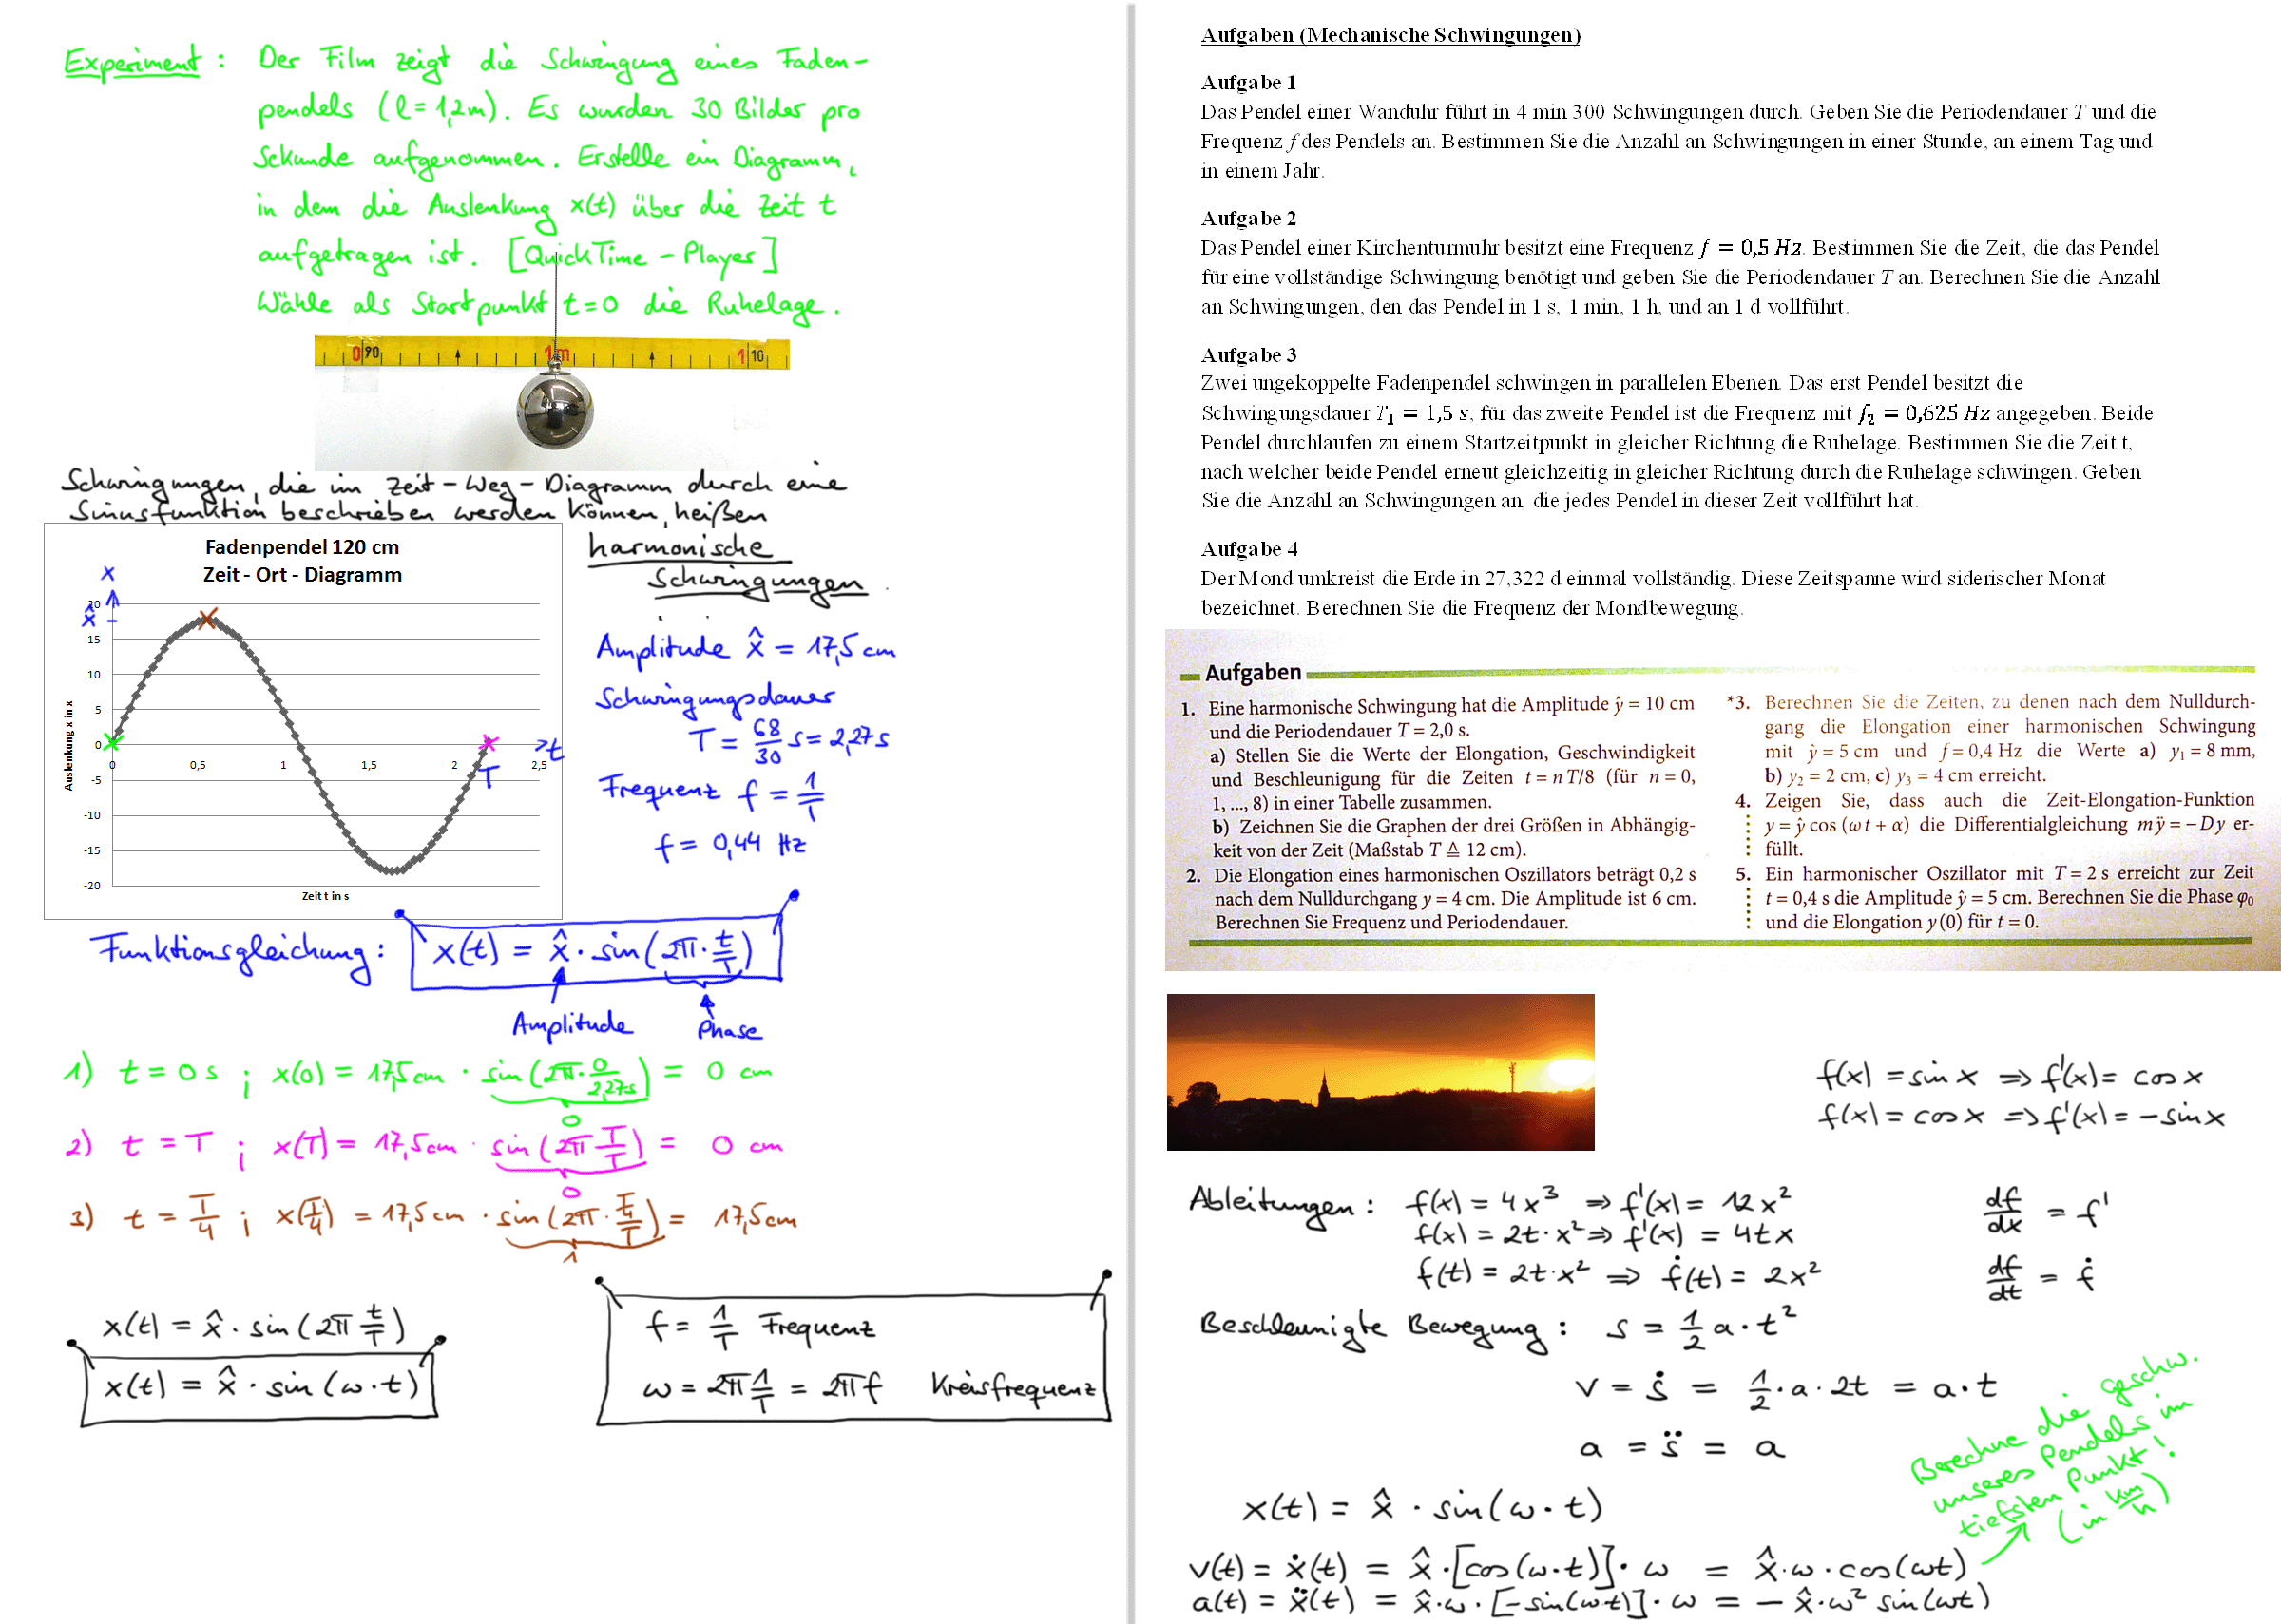 Experiment: Der Film zeigt die Schwingung eines Faden-
pendels (l = 1,2m). Es wurden 30 Bilder pro
Sekunde aufgenommen. Erstelle ein Diagramm,
in dem die Auslenkung x(t) über die Zeit t
aufgetragen ist. [QuickTime - Player]
Wähle als Startpunkt t=0 die Ruhelage.
0 90 1m 1 10
Schwingungen, die im Zeit-Weg-Diagramm durch eine
Sinusfunktion beschrieben werden können, heißen
harmonische
Schwingungen.
Fadenpendel 120 cm
Zeit - Ort - Diagramm
x
x̂
Auslenkung x in x
20
15
10
5
0
-5
-10
-15
-20
0 0,5 1 1,5 2 2,5
t
T
Zeit t in s
Amplitude x̂ = 17,5 cm
Schwingungsdauer
T = 68/30 s = 2,27 s
Frequenz f = 1/T
f = 0,44 Hz
Funktionsgleichung: x(t) = x̂ · sin(2π · t/T)
Amplitude Phase
1) t = 0 s ; x(0) = 17,5 cm · sin(2π · 0/2,27s) = 0 cm
0
2) t = T ; x(T) = 17,5 cm · sin(2π T/T) = 0 cm
0
3) t = T/4 ; x(T/4) = 17,5 cm · sin(2π · T/4/T) = 17,5 cm
1
x(t) = x̂ · sin(2π t/T)
x(t) = x̂ · sin(ω · t)
f = 1/T Frequenz
ω = 2π 1/T = 2πf Kreisfrequenz
Aufgaben (Mechanische Schwingungen)
Aufgabe 1
Das Pendel einer Wanduhr führt in 4 min 300 Schwingungen durch. Geben Sie die Periodendauer T und die
Frequenz f des Pendels an. Bestimmen Sie die Anzahl an Schwingungen in einer Stunde, an einem Tag und
in einem Jahr.
Aufgabe 2
Das Pendel einer Kirchenturmuhr besitzt eine Frequenz f = 0,5 Hz. Bestimmen Sie die Zeit, die das Pendel
für eine vollständige Schwingung benötigt und geben Sie die Periodendauer T an. Berechnen Sie die Anzahl
an Schwingungen, den das Pendel in 1 s, 1 min, 1 h, und an 1 d vollführt.
Aufgabe 3
Zwei ungekoppelte Fadenpendel schwingen in parallelen Ebenen. Das erst Pendel besitzt die
Schwingungsdauer T₁ = 1,5 s, für das zweite Pendel ist die Frequenz mit f₂ = 0,625 Hz angegeben. Beide
Pendel durchlaufen zu einem Startzeitpunkt in gleicher Richtung die Ruhelage. Bestimmen Sie die Zeit t,
nach welcher beide Pendel erneut gleichzeitig in gleicher Richtung durch die Ruhelage schwingen. Geben
Sie die Anzahl an Schwingungen an, die jedes Pendel in dieser Zeit vollführt hat.
Aufgabe 4
Der Mond umkreist die Erde in 27,322 d einmal vollständig. Diese Zeitspanne wird siderischer Monat
bezeichnet. Berechnen Sie die Frequenz der Mondbewegung.
Aufgaben
1. Eine harmonische Schwingung hat die Amplitude ŷ = 10 cm
und die Periodendauer T = 2,0 s.
a) Stellen Sie die Werte der Elongation, Geschwindigkeit
und Beschleunigung für die Zeiten t = n T/8 (für n = 0,
1, ..., 8) in einer Tabelle zusammen.
b) Zeichnen Sie die Graphen der drei Größen in Abhängig-
keit von der Zeit (Maßstab T ≙ 12 cm).
2. Die Elongation eines harmonischen Oszillators beträgt 0,2 s
nach dem Nulldurchgang y = 4 cm. Die Amplitude ist 6 cm.
Berechnen Sie Frequenz und Periodendauer.
*3. Berechnen Sie die Zeiten, zu denen nach dem Nulldurch-
gang die Elongation einer harmonischen Schwingung
mit ŷ = 5 cm und f = 0,4 Hz die Werte a) y₁ = 8 mm,
b) y₂ = 2 cm, c) y₃ = 4 cm erreicht.
4. Zeigen Sie, dass auch die Zeit-Elongation-Funktion
y = ŷ cos (ω t + α) die Differentialgleichung mÿ = − Dy er-
füllt.
5. Ein harmonischer Oszillator mit T = 2 s erreicht zur Zeit
t = 0,4 s die Amplitude ŷ = 5 cm. Berechnen Sie die Phase φ₀
und die Elongation y (0) für t = 0.
f(x) = sin x ⇒ f'(x) = cos x
f(x) = cos x ⇒ f'(x) = − sin x
Ableitungen: f(x) = 4x³ ⇒ f'(x) = 12x² df/dx = f'
f(x) = 2t · x² ⇒ f'(x) = 4tx
f(t) = 2t · x² ⇒ ḟ(t) = 2x² df/dt = ḟ
Beschleunigte Bewegung: s = 1/2 a · t²
v = ṡ = 1/2 · a · 2t = a · t
a = s̈ = a
Berechne die Geschw.
unseres Pendels im
tiefsten Punkt!
(in km/h)
x(t) = x̂ · sin(ω · t)
v(t) = ẋ(t) = x̂ · [cos(ω · t)] · ω = x̂ · ω · cos(ωt)
a(t) = ẍ(t) = x̂ · ω · [−sin(ω·t)] · ω = − x̂ · ω² sin(ωt)